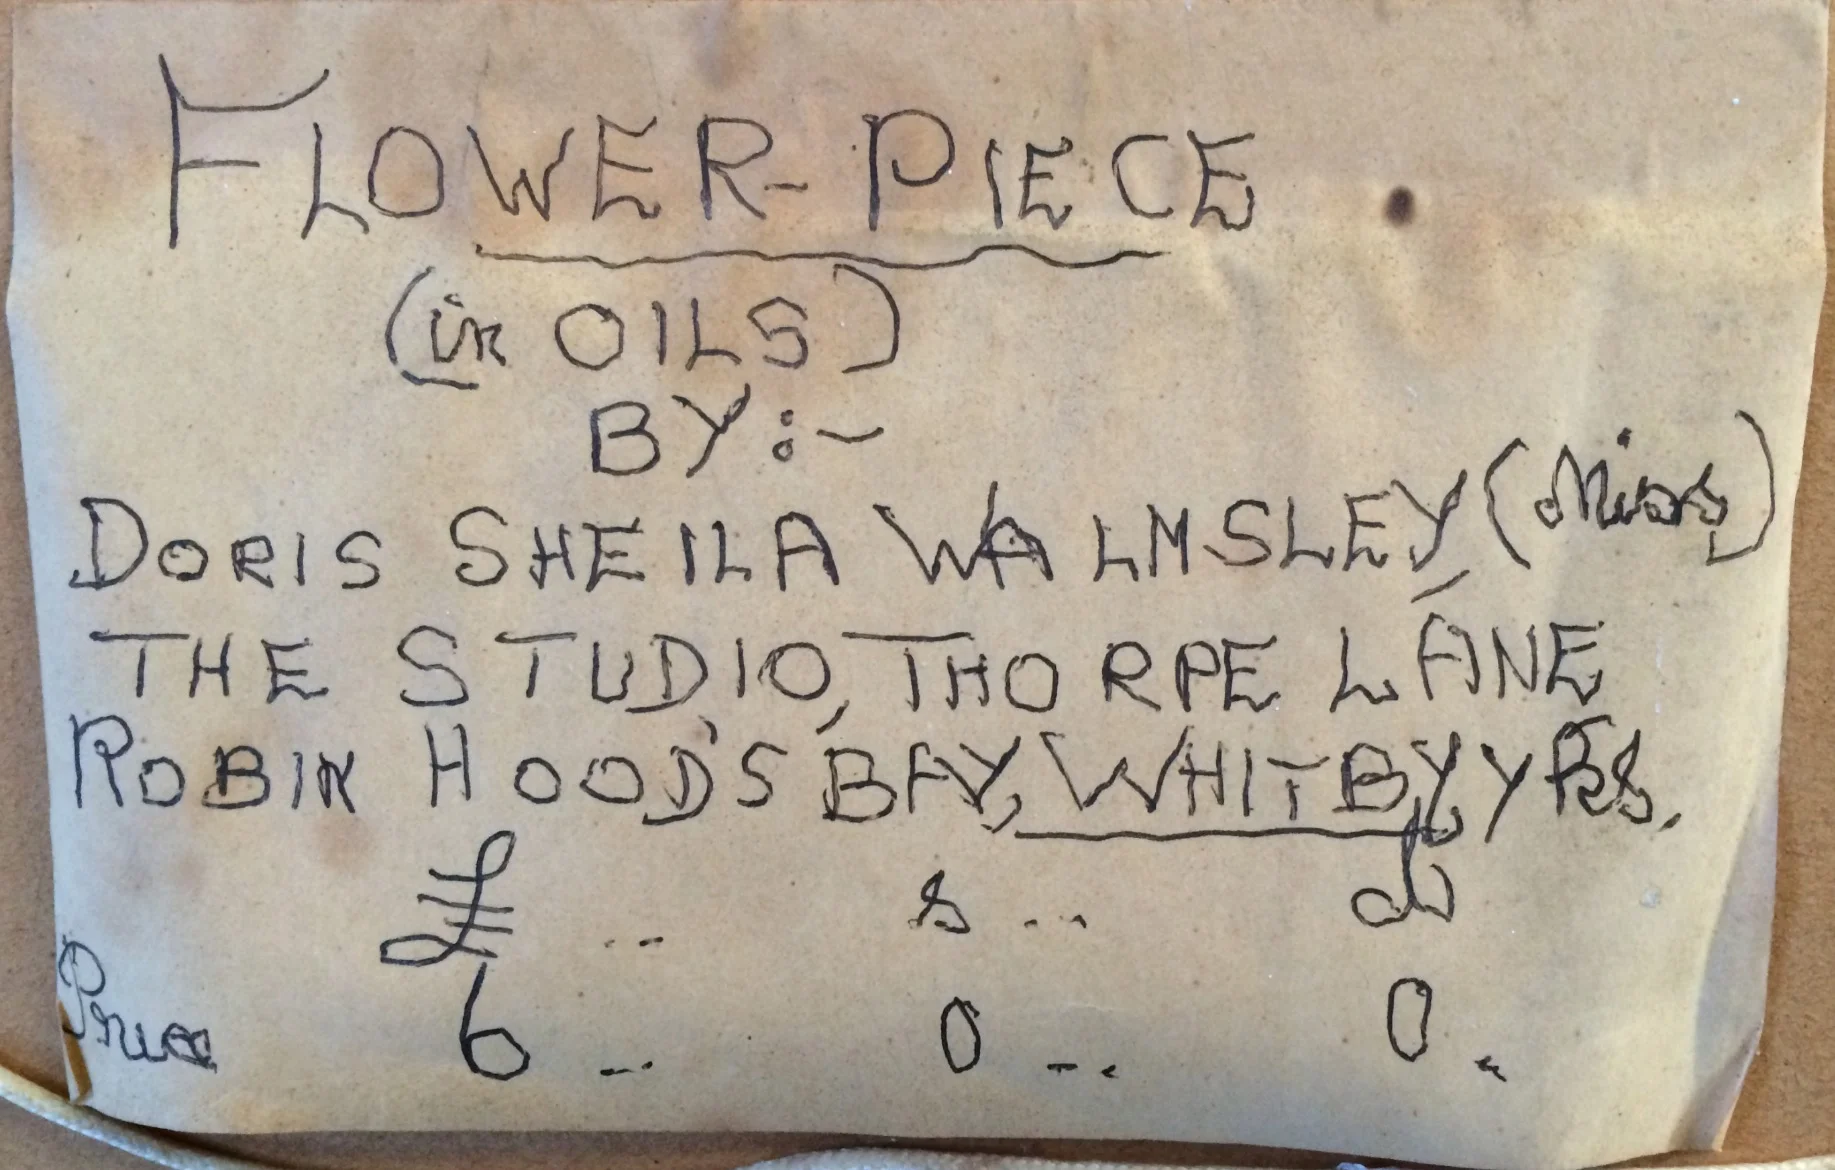 FLOWER-PIECE
(in OILS)
BY:-
DORIS SHEILA WALMSLEY, (Miss)
THE STUDIO, THORPE LANE
ROBIN HOOD'S BAY, WHITBY, YRS.
£ .. s ... d
Price 6 ... 0 ... 0 .